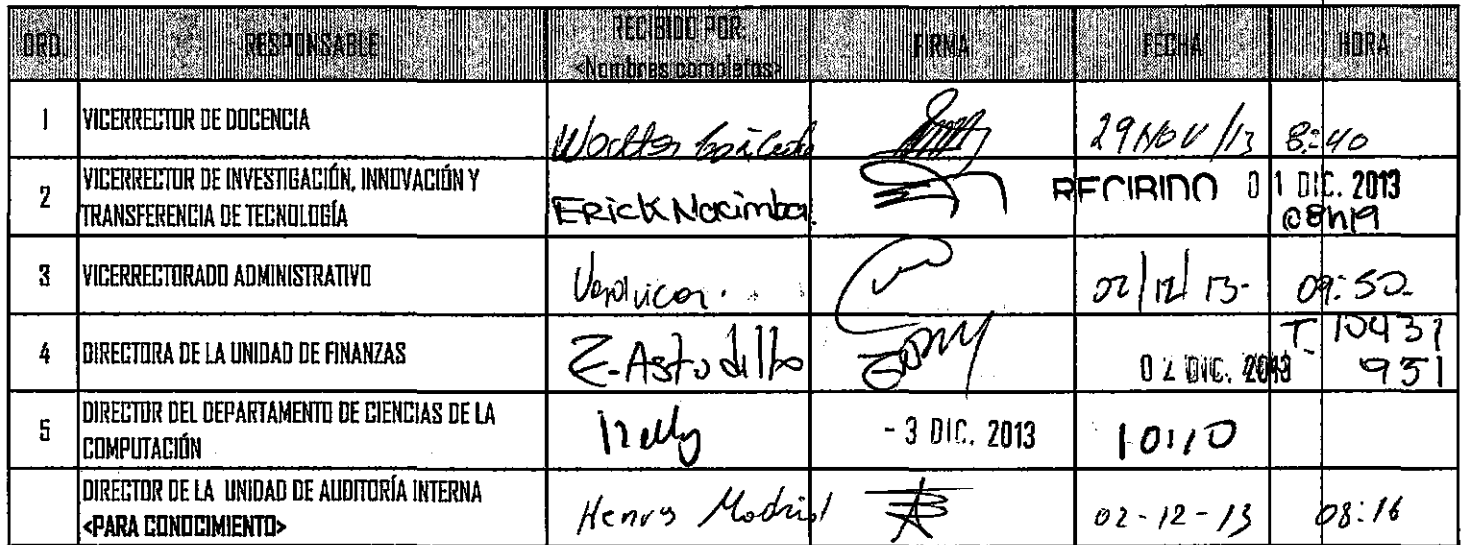 ORD. RESPONSABLE RECIBIDO POR: FIRMA FECHA HORA
<Nombres completos>
1 VICERRECTOR DE DOCENCIA 29 NOV /13 8:40
2 VICERRECTOR DE INVESTIGACIÓN, INNOVACIÓN Y TRANSFERENCIA DE TECNOLOGÍA Erick Nacimba. RECIBIDO 0 1 DIC. 2013
08h19
3 VICERRECTORADO ADMINISTRATIVO 02/12/13- 09:50
4 DIRECTORA DE LA UNIDAD DE FINANZAS E-Astudillo 0 2 DIC. 2013 T 10437
951
5 DIRECTOR DEL DEPARTAMENTO DE CIENCIAS DE LA COMPUTACIÓN - 3 DIC. 2013 10:10
DIRECTOR DE LA UNIDAD DE AUDITORÍA INTERNA
<PARA CONOCIMIENTO> Henry Madrid 02-12-13 08:16